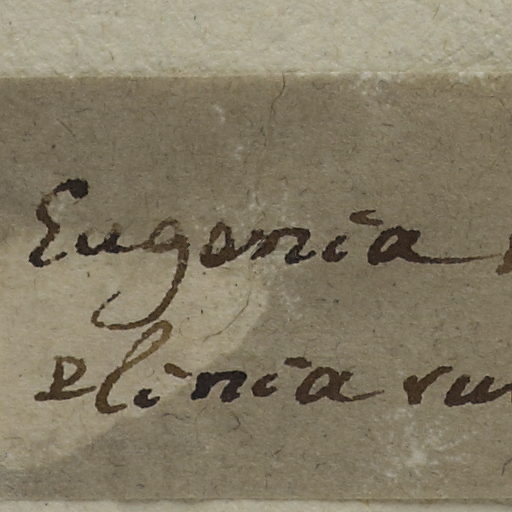 Eugania
plinia ru